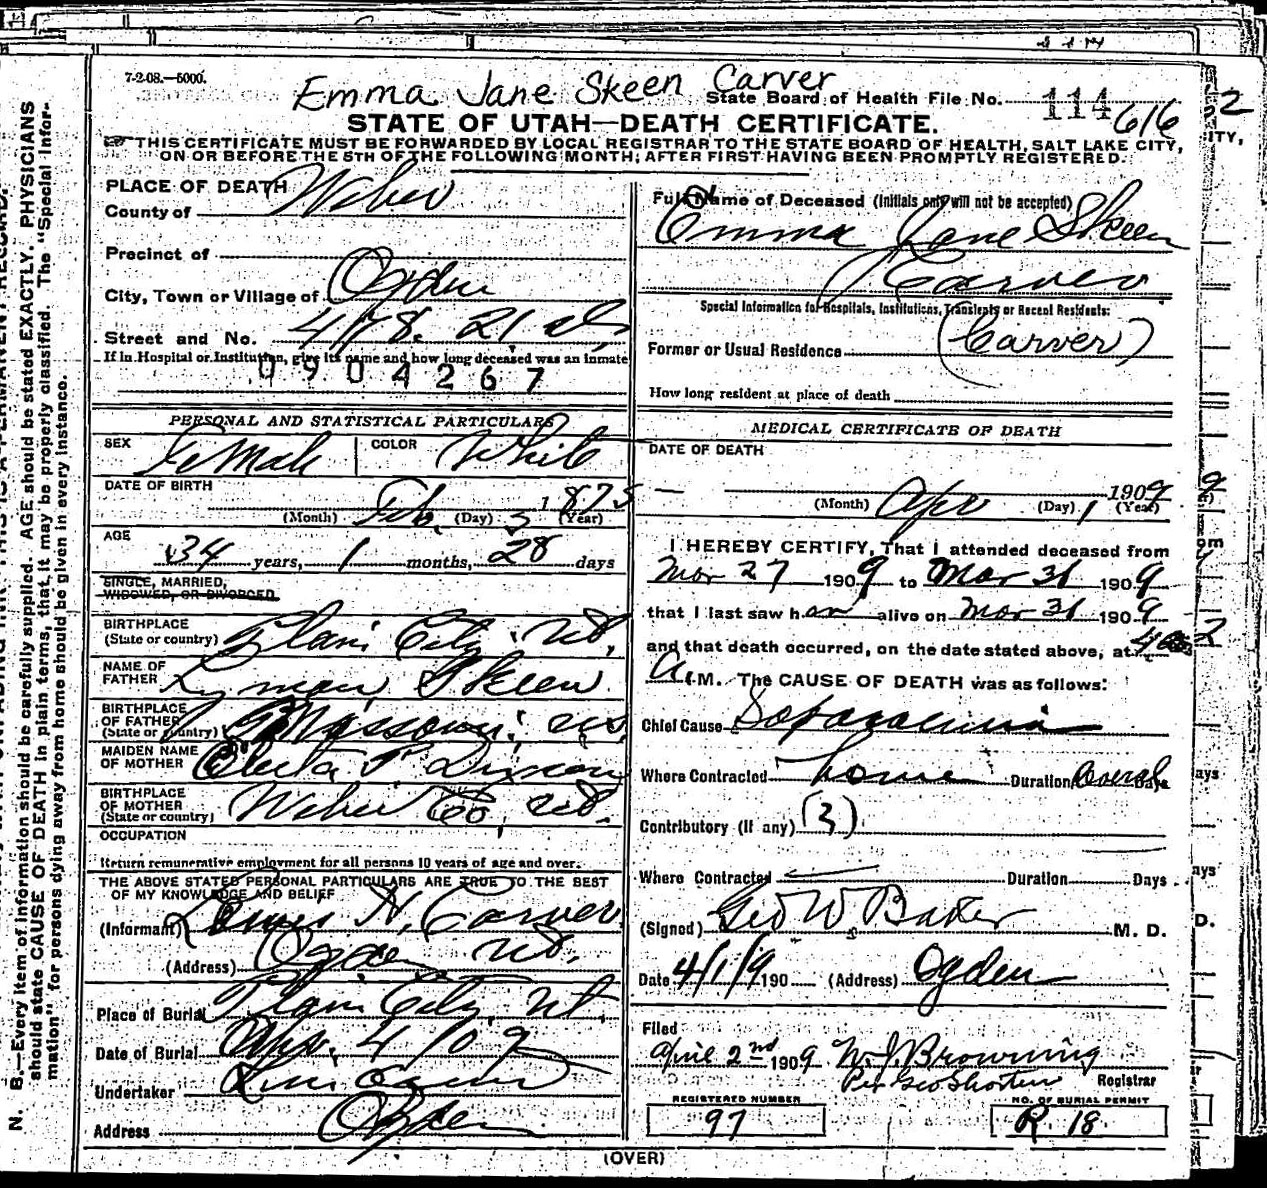 7-2-08.—5000.
Emma Jane Skeen Carver
State Board of Health File No. 114 616
STATE OF UTAH—DEATH CERTIFICATE.
THIS CERTIFICATE MUST BE FORWARDED BY LOCAL REGISTRAR TO THE STATE BOARD OF HEALTH, SALT LAKE CITY,
ON OR BEFORE THE 5TH OF THE FOLLOWING MONTH, AFTER FIRST HAVING BEEN PROMPTLY REGISTERED.
PLACE OF DEATH
County of Weber
Precinct of
City, Town or Village of Ogden
Street and No. 478. 21 st,
If in Hospital or Institution, give its name and how long deceased was an inmate
0904267
PERSONAL AND STATISTICAL PARTICULARS
SEX Female COLOR White
DATE OF BIRTH
(Month) Feb. (Day) 3 1875 (Year)
AGE
34 years, 1 months, 28 days
SINGLE, MARRIED,
WIDOWED, OR DIVORCED
BIRTHPLACE
(State or country) Plain City, Ut,
NAME OF
FATHER Lyman Skeen
BIRTHPLACE
OF FATHER
(State or country)
MAIDEN NAME
OF MOTHER Electa P. Dixon
BIRTHPLACE
OF MOTHER
(State or country) Weber Co, Ut.
OCCUPATION
Return remunerative employment for all persons 10 years of age and over.
THE ABOVE STATED PERSONAL PARTICULARS ARE TRUE TO THE BEST
OF MY KNOWLEDGE AND BELIEF
(Informant) N. Carver
(Address) Ogden Ut.
Place of Burial Plain City, Ut.
Date of Burial 4/09
Undertaker
Address Ogden
Full Name of Deceased (Initials only will not be accepted)
Emma Jane Skeen
Carver
Special Information for Hospitals, Institutions, Transients or Recent Residents:
(Carver)
Former or Usual Residence
How long resident at place of death
MEDICAL CERTIFICATE OF DEATH
DATE OF DEATH
1909
(Month) Apr (Day) 1 (Year)
I HEREBY CERTIFY, That I attended deceased from
Mar 27 1909 to Mar 31 1909
that I last saw her alive on Mar 31 1909
and that death occurred, on the date stated above, at 4
A.M. The CAUSE OF DEATH was as follows:
Chief Cause
Where Contracted home Duration Several Days
Contributory (if any) (3)
Where Contracted Duration Days
(Signed) Geo W Baker M. D.
Date 4/1/9 190 (Address) Ogden
Filed
April 2nd 1909 W. J. Browning
Per Geo Shorten Registrar
REGISTERED NUMBER
97
NO. OF BURIAL PERMIT
R. 18
(OVER)
N. B.—Every item of information should be carefully supplied. AGE should be stated EXACTLY. PHYSICIANS
should state CAUSE OF DEATH in plain terms, that it may be properly classified. The "Special Infor-
mation" for persons dying away from home should be given in every instance.